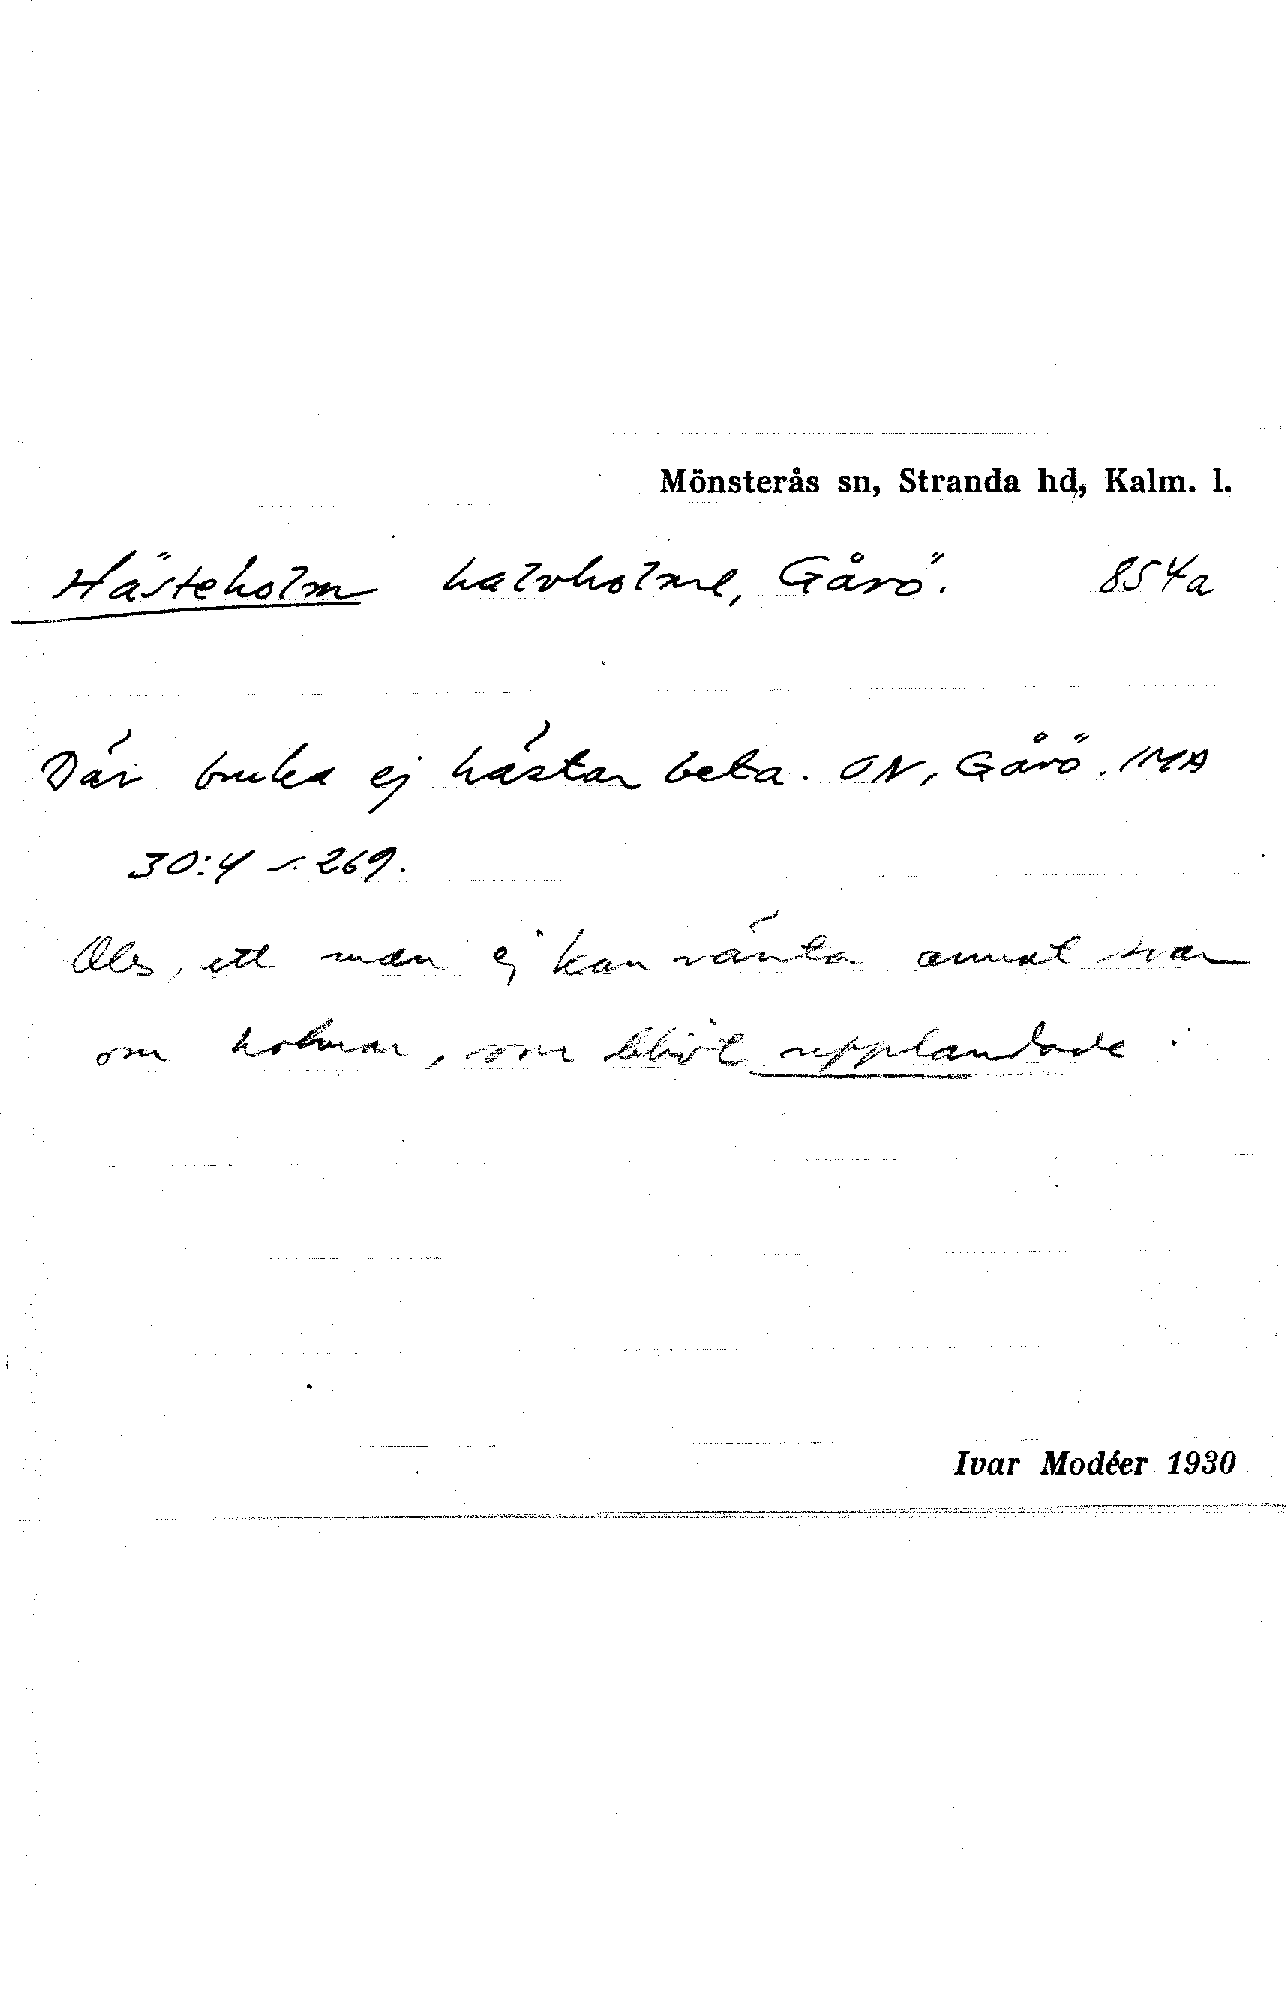 Mönsterås sn, Stranda hd, Kalm. l.
Hästeholm halvholme, Gåsö. 854a
Där bruka ej hästar beta. ON, Gåsö. IMA
30:4 s. 269.
Obs, att man ej kan vänta annat svar
om holmar, som blivit upplandade.
Ivar Modéer 1930